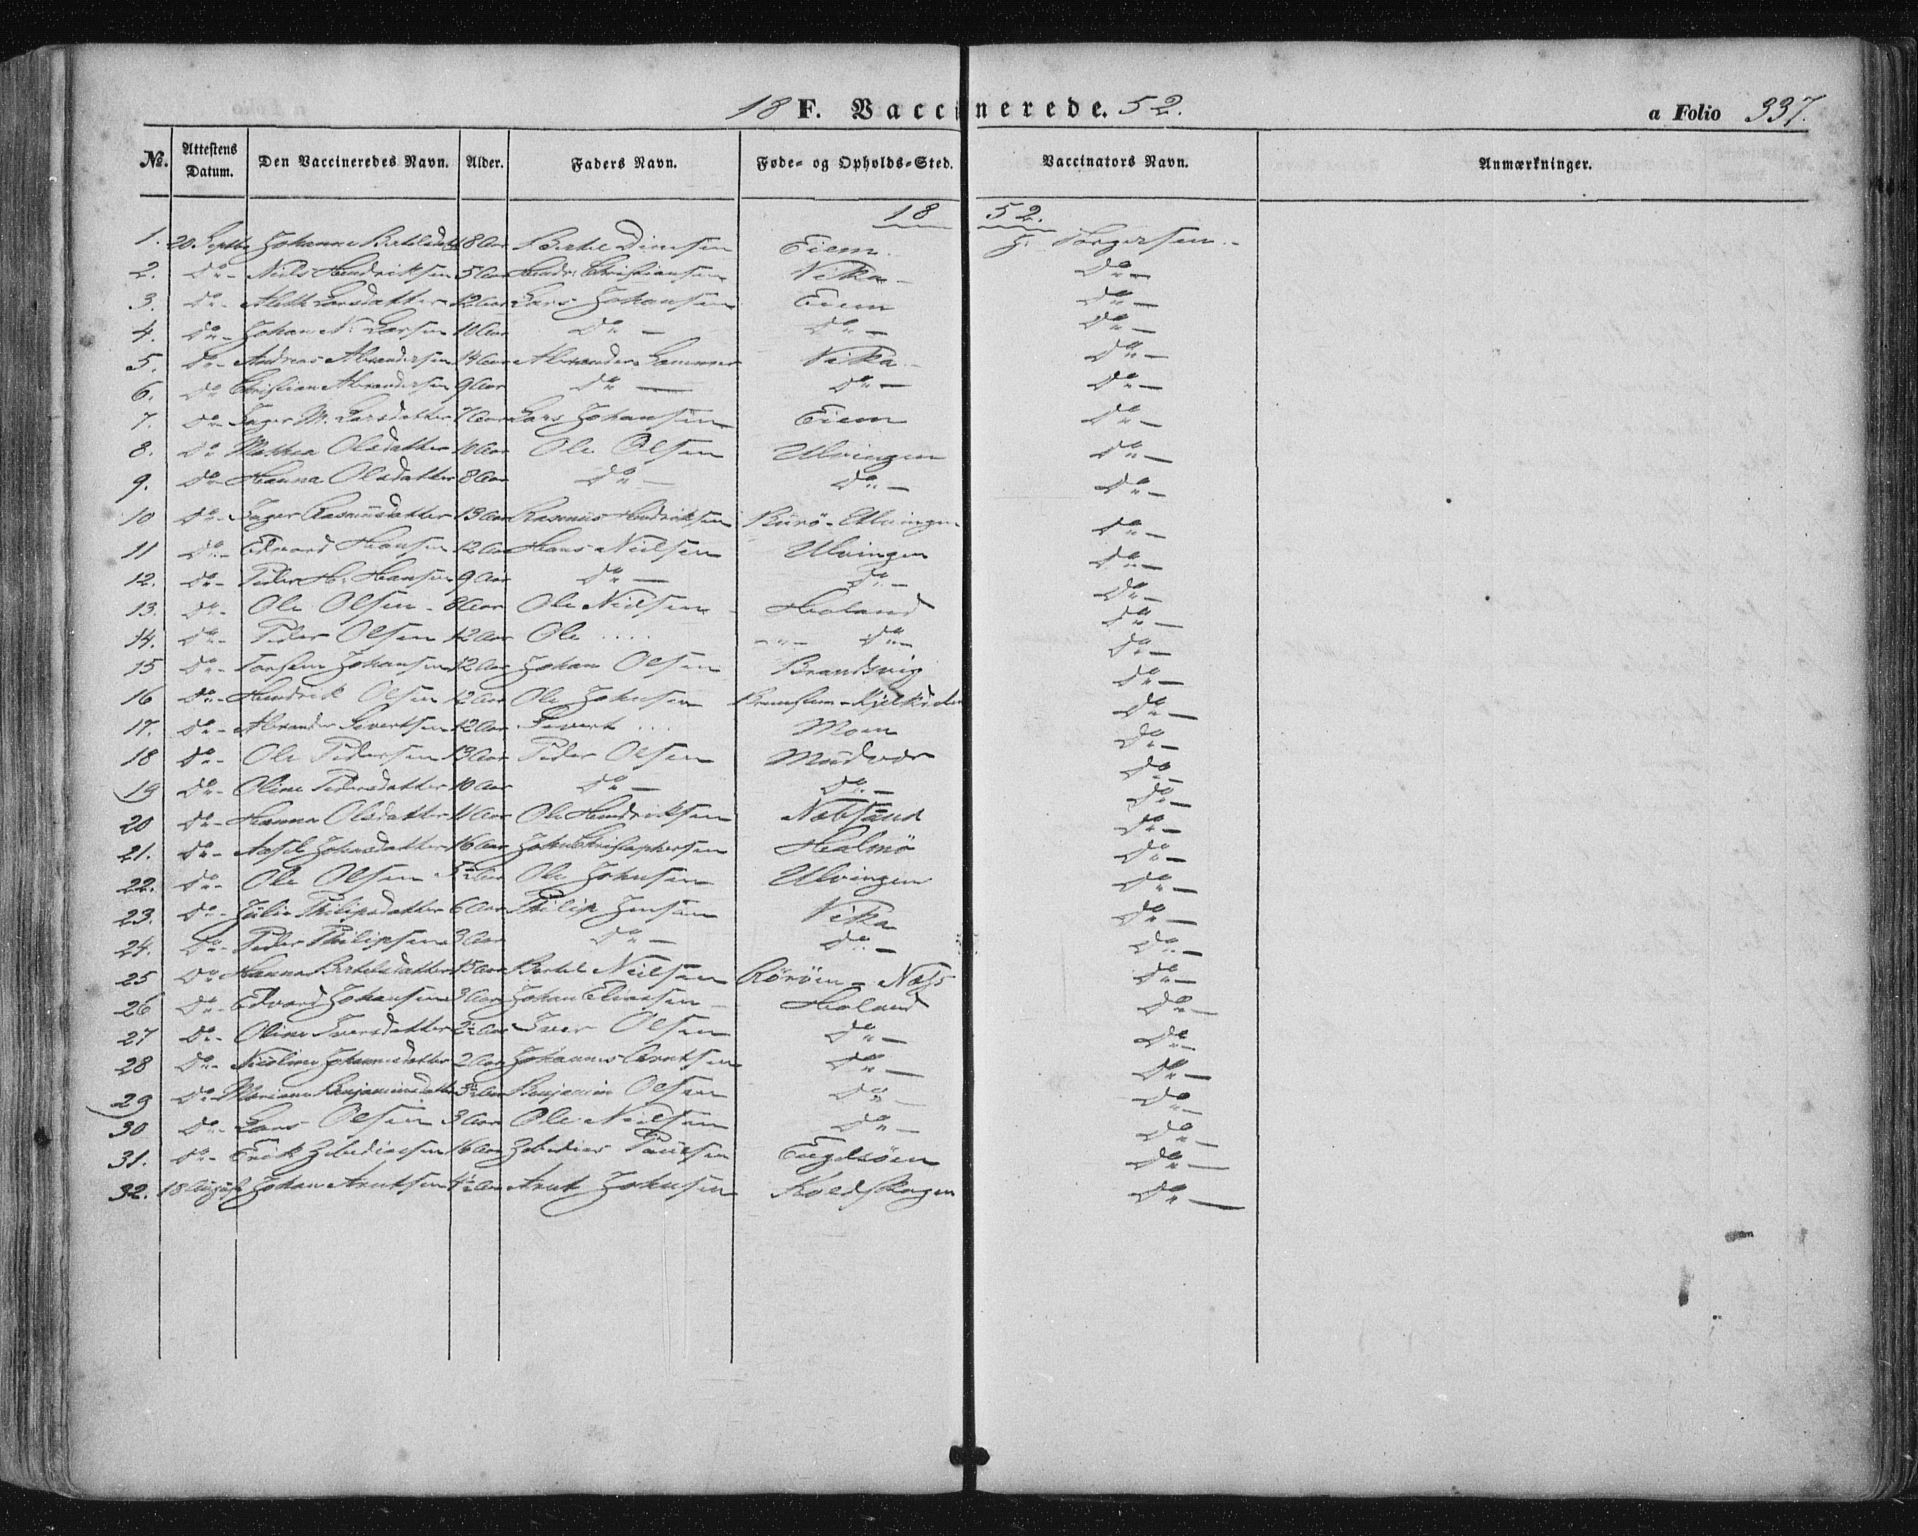 18 F. Vaccinerede. 52. a Folio 337.
No. Attestens Datum. Den Vaccineredes Navn. Alder. Faders Navn. Føde- og Opholds-Sted. Vaccinators Navn. Anmærkninger.
18 52.
1. 20 Septbr Johanne Berteldatter 8 Aar Bertel Dinesen Eiem Torgersen
2. Do Niels Hendriksen 5 Aar Hendr. Christiansen Vika Do
3. Do Larsdatter 12 Aar Lars Johansen Eiem Do
4. Do Johan N. Larsen 10 Aar Do Do Do
5. Do Andreas Alexandersen 14 Aar Alexander Vika Do
6. Do Christian Alexandersen 9 Aar Do Do Do
7. Do Inger M. Larsdatter 7 Aar Lars Johansen Eiem Do
8. Do Mathea Olsdatter 10 Aar Ole Olsen Ulvingen Do
9. Do Hanna Olsdatter 8 Aar Do Do Do
10 Do Inger Rasmusdatter 13 Aar Rasmus Hendriksen Burø - Ulvingen Do
11 Do Edvard Hansen 12 Aar Hans Neilsen Ulvingen Do
12. Do Peder H. Hansen 9 Aar Do Do Do
13 Do Ole Olsen 8 Aar Ole Nielsen Høland Do
14. Do Peder Olsen 12 Aar Ole .... Do Do
15 Do Johansen 12 Aar Johan Olsen Brandsvig Do
16 Do Hendrik Olsen 12 Aar Ole Johnsen Do
17. Do Alexander Sivertsen 12 Aar Sivert ... Moen Do
18 Do Ole Pedersen 13 Aar Peder Olsen Mudvær Do
19 Do Oline Pedersdatter 10 Aar Do Do Do
20 Do Hanna Olsdatter 11 Aar Ole Hendriksen Næbsund Do
21. Do Johnsdatter 16 Aar John Christophersen Halmø Do
22. Do Ole Olsen 5½ Aar Ole Johnsen Ulvingen Do
23. Do Julie Philipsdatter 6 Aar Philip Jensen Vika Do
24. Do Peder Philipsen 3 Aar Do Do Do
25 Do Hanna Bertelsdatter 15 Aar Bertel Neilsen Rørøen - Næss Do
26 Do Edvard Johansen 3 Aar Johan Eliassen Høland Do
27 Do Oline Iversdatter 2½ Aar Iver Olsen Do Do
28 Do Nicoline Johannesdatter 2 Aar Johannes Arntsen Do Do
29 Do Mariane Benjaminsdatter 3½ Aar Benjamin Olsen Do Do
30 Do Lars Olsen 3 Aar Ole Nielsen Do Do
31. Do Erik Zebediassen 16 Aar Zebedias Paulsen Engelsøen Do
32. 18 August Johan Arntsen 1½ Aar Arnt Johnsen Koldskogen Do